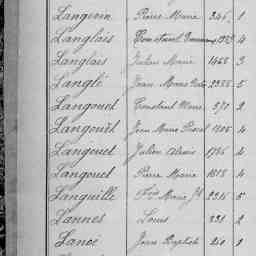 Langouin Pierre Marie 346 1
Langlais Constant 1929 4
Langlais Julien Marie 1468 3
Langlé Jean Marie 2386 5
Langouet Constant Marie 571 2
Langouët Jean Marie 1806 4
Langouet Julien Alexis 1786 4
Langouet Pierre Marie 1878 4
Languille Marie 2316 5
Lannes Louis 231 2
Lanoé Jean Baptiste 240